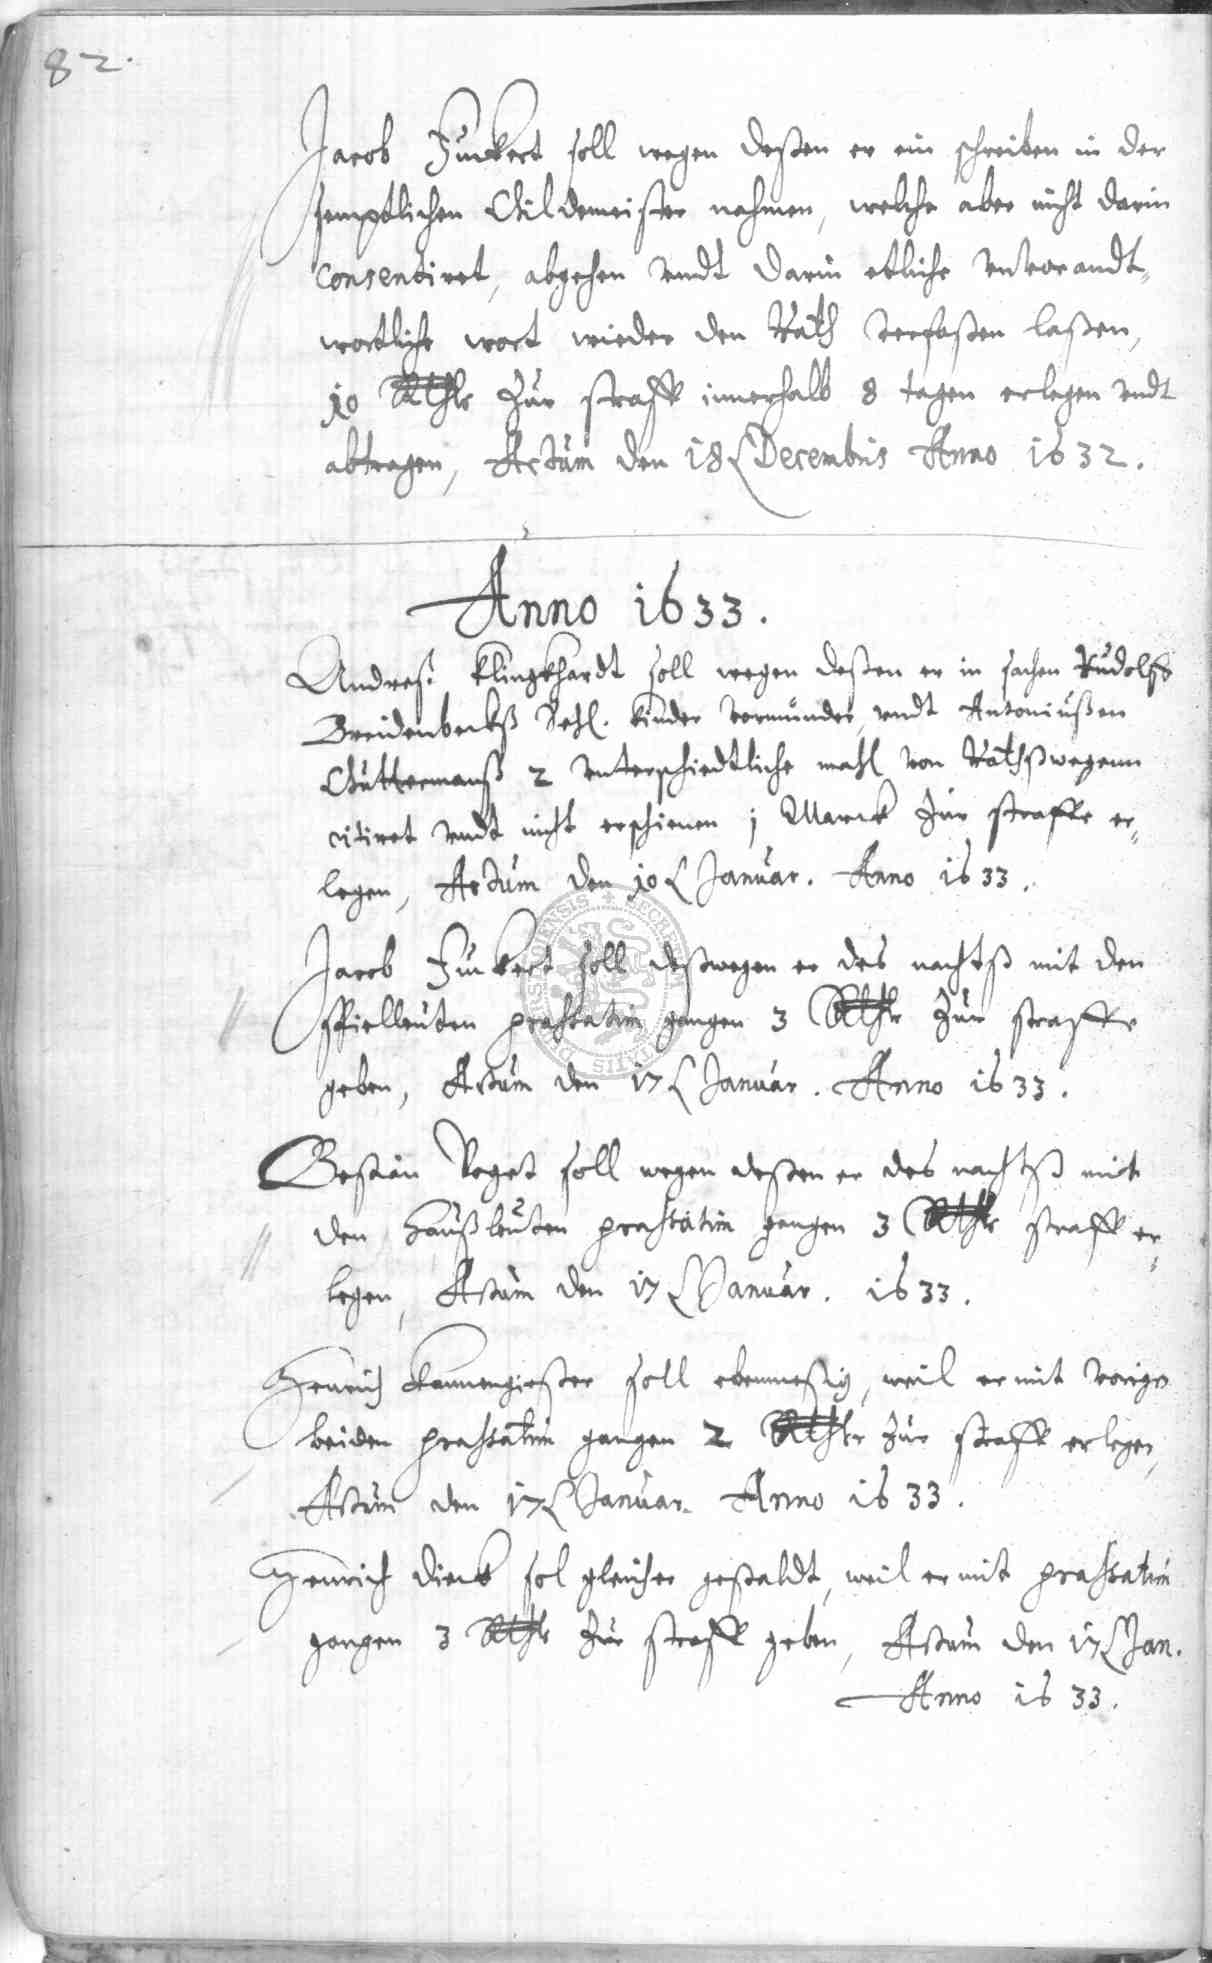 82.
Jacob Zuckert soll wegen deßen er ein schreiben in der
semptlichen Gildemeister nahmen, welche aber nicht darin
consentiret, abgehen undt darin etliche unverandt„
wortliche wort wieder den Rath verfaßen laßen,
10 Rthlr zur straff innerhalb 8 tagen erlegen undt
abtragen, Actum den 18 Decembris Anno 1632.
Anno 1633.
Andreß Klingkhardt soll wegen deßen er in sachen Rudolff
Breidenbachß Sehl. kinder vormunder, undt Antoniußen
Guttermanß 2 unterschiedtliche mahl von Rathßwegenn
citiret undt nicht erschienen j Marck zur straffe er„
legen, Actum den 10 Januar. Anno 1633.
Jacob Zuckert soll deßwegen er des nachtß mit den
spielleuten prassatim gangen 3 Rthlr zur straffe
geben, Actum den 17 Januar. Anno 1633.
Bestian Voget soll wegen deßen er des nachtß mit
den haußleuten prassatim gangen 3 Rthlr straff er„
legen, Actum den 17 Januar. 1633.
Henrich Kannengießer soll ebenmeßig, weil er mit vorige
beiden prassatim gangen 2 Rthlr zur straff erlegen,
Actum den 17 Januar. Anno 1633.
Henrich Dieck sol gleicher gestaldt, weil er mit prassatim
gangen 3 Rthlr zur straff geben, Actum den 17 Jan.
Anno 1633.